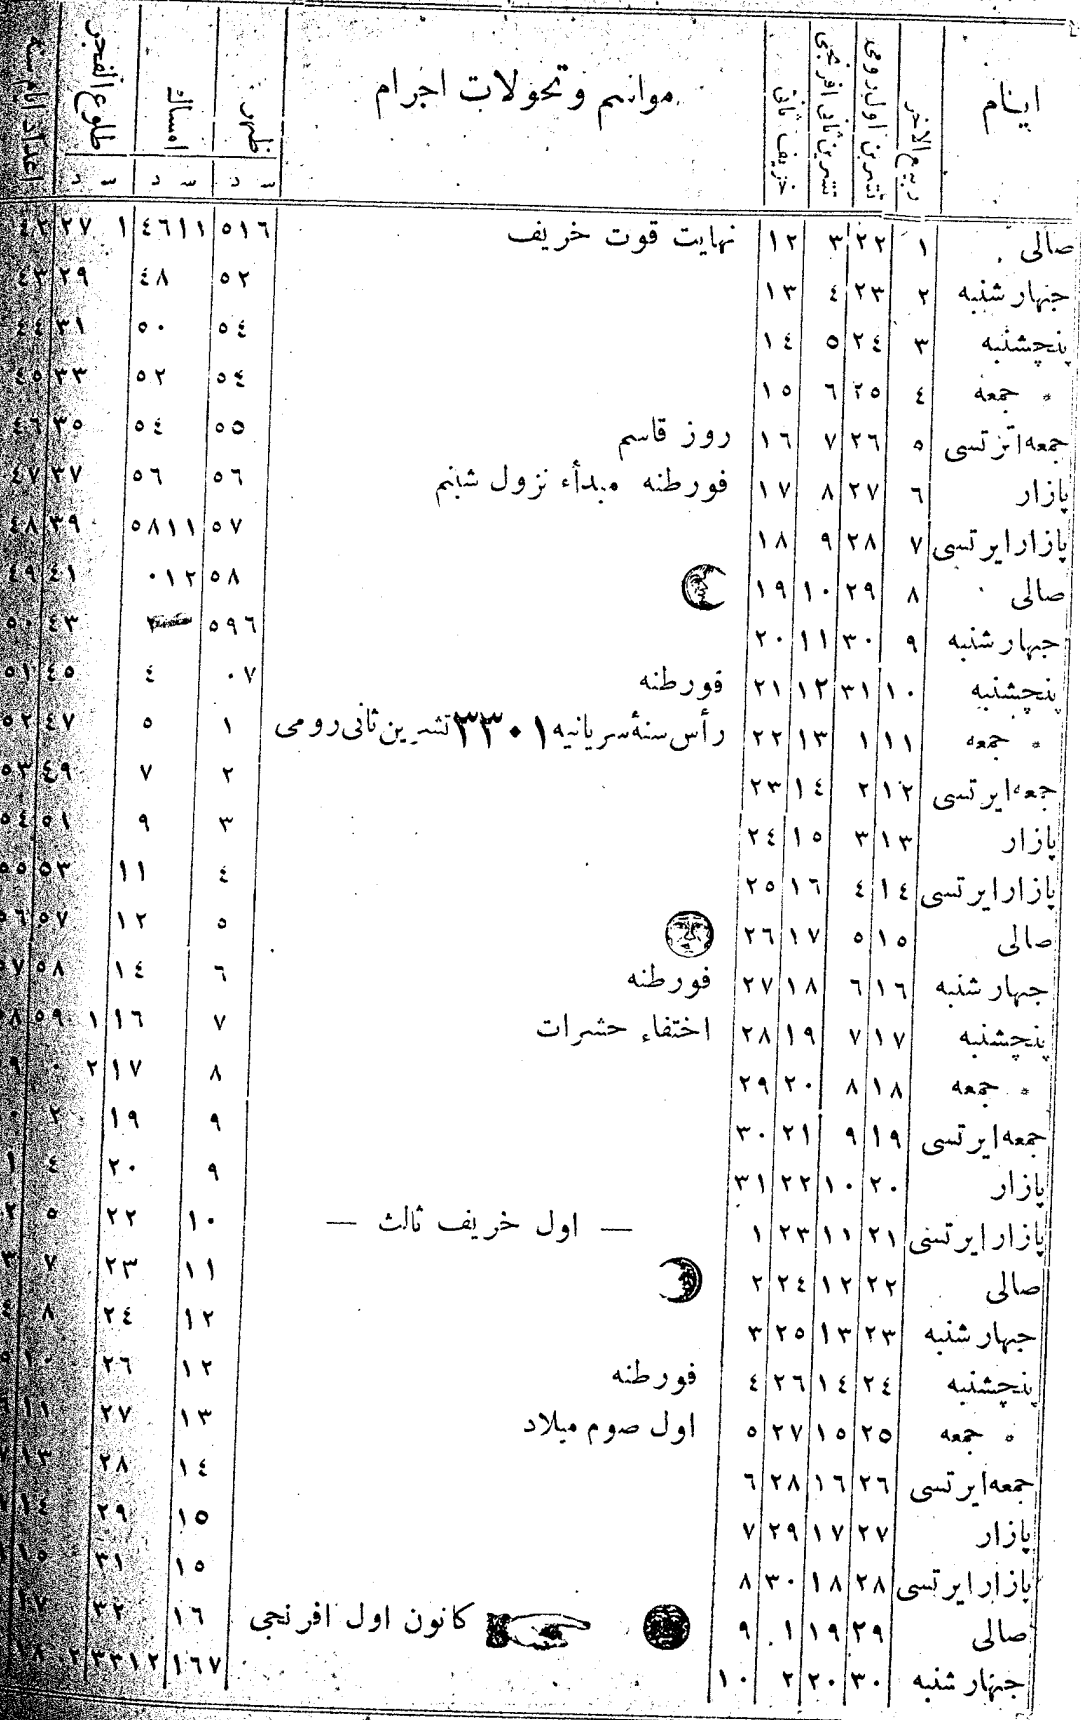 ايام ربيع الاخر تشرين اول رومى تشرين ثانى افرنجى خزيف ثانى مواسم وتحولات اجرام ظهر امساك طلوع الفجر اعداد ايام سنه
س د س د س د
صالى ١ ٢٢ ٣ ١٢ نهايت قوت خريف ٥١٦ ٤٦١١ ٢٧ ١ ٤٢
چهارشنبه ٢ ٢٣ ٤ ١٣ ٥٢ ٤٨ ٢٩ ٤٣
پنجشنبه ٣ ٢٤ ٥ ١٤ ٥٤ ٥٠ ٣١ ٤٤
* جمعه ٤ ٢٥ ٦ ١٥ ٥٤ ٥٢ ٣٣ ٤٥
جمعه ايرتسى ٥ ٢٦ ٧ ١٦ روز قاسم ٥٥ ٥٤ ٣٥ ٤٦
پازار ٦ ٢٧ ٨ ١٧ فورطنه مبدأء نزول شبنم ٥٦ ٥٦ ٣٧ ٤٧
پازارايرتسى ٧ ٢٨ ٩ ١٨ ٥٧ ٥٨١١ ٣٩ ٤٨
صالى ٨ ٢٩ ١٠ ١٩ ٥٨ ٠١٢ ٤١ ٤٩
چهارشنبه ٩ ٣٠ ١١ ٢٠ ٥٩٦ ٤٣ ٥٠
پنجشنبه ١٠ ٣١ ١٢ ٢١ فورطنه ٠٧ ٤ ٤٥ ٥١
* جمعه ١١ ١ ١٣ ٢٢ رأس سنۀ سريانيه ٣٣٠١ تشرين ثانى رومى ١ ٥ ٤٧ ٥٢
جمعه ايرتسى ١٢ ٢ ١٤ ٢٣ ٢ ٧ ٤٩ ٥٣
پازار ١٣ ٣ ١٥ ٢٤ ٣ ٩ ٥١ ٥٤
پازارايرتسى ١٤ ٤ ١٦ ٢٥ ٤ ١١ ٥٣ ٥٥
صالى ١٥ ٥ ١٧ ٢٦ ٥ ١٢ ٥٧ ٥٦
چهارشنبه ١٦ ٦ ١٨ ٢٧ فورطنه ٦ ١٤ ٥٨ ٥٧
پنجشنبه ١٧ ٧ ١٩ ٢٨ اختفاء حشرات ٧ ١٦ ٥٩ ١ ٥٨
* جمعه ١٨ ٨ ٢٠ ٢٩ ٨ ١٧ ٠ ٢
جمعه ايرتسى ١٩ ٩ ٢١ ٣٠ ٩ ١٩ ٢
پازار ٢٠ ١٠ ٢٢ ٣١ ٩ ٢٠ ٤
پازارايرتسى ٢١ ١١ ٢٣ ١ — اول خريف ثالث — ١٠ ٢٢ ٥
صالى ٢٢ ١٢ ٢٤ ٢ ١١ ٢٣ ٧
چهارشنبه ٢٣ ١٣ ٢٥ ٣ ١٢ ٢٤ ٨
پنجشنبه ٢٤ ١٤ ٢٦ ٤ فورطنه ١٢ ٢٦ ١٠
* جمعه ٢٥ ١٥ ٢٧ ٥ اول صوم ميلاد ١٣ ٢٧ ١١
جمعه ايرتسى ٢٦ ١٦ ٢٨ ٦ ١٤ ٢٨ ١٣
پازار ٢٧ ١٧ ٢٩ ٧ ١٥ ٢٩ ١٤
پازارايرتسى ٢٨ ١٨ ٣٠ ٨ ١٥ ٣١ ١٥
صالى ٢٩ ١٩ ١ ٩ كانون اول افرنجى ١٦ ٣٢ ١٧
چهارشنبه ٣٠ ٢٠ ٢ ١٠ ١٦٧ ٣٣١٢ ٢ ١٨